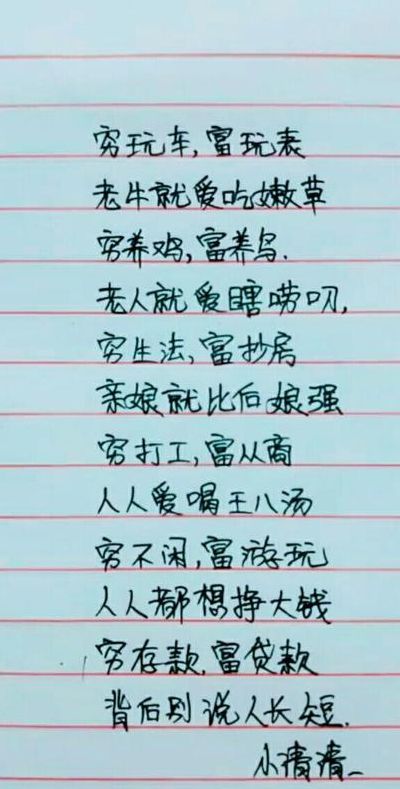 穷玩车,富玩表
老牛就爱吃嫩草
穷养鸡,富养鸟.
老人就爱瞎唠叨,
穷生法,富抄房
亲娘就比后娘强
穷打工,富从商
人人爱喝王八汤
穷不闲,富游玩
人人都想挣大钱
穷存款.富贷款
背后别说人长短.
小清清